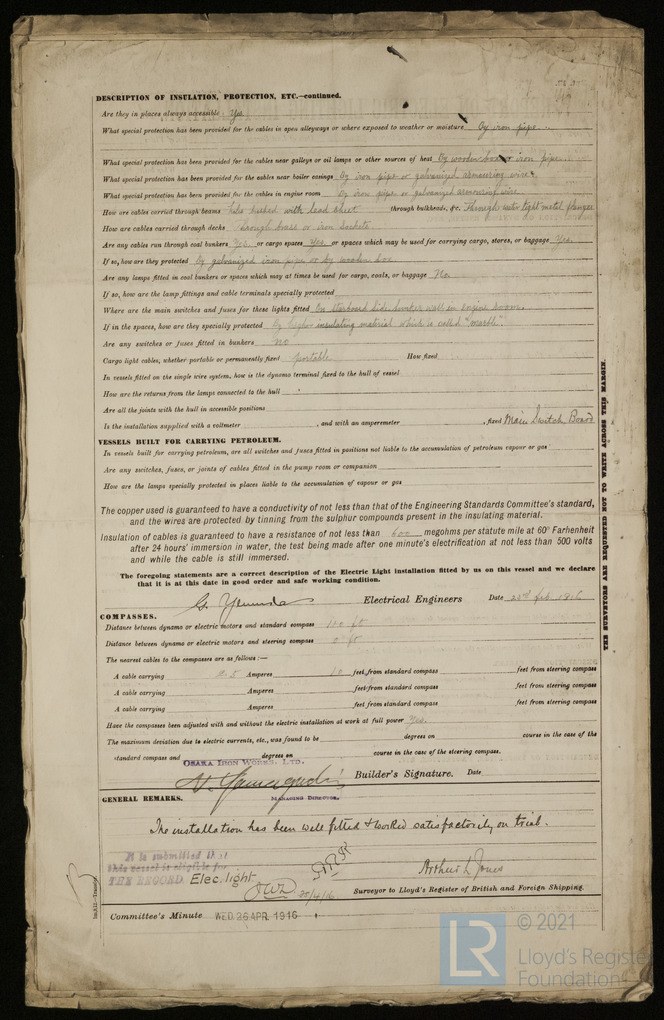 DESCRIPTION OF INSULATION, PROTECTION, ETC.—continued.
Are they in places always accessible Yes
What special protection has been provided for the cables in open alleyways or where exposed to weather or moisture By iron pipe
What special protection has been provided for the cables near galleys or oil lamps or other sources of heat By wooden box or iron pipe
What special protection has been provided for the cables near boiler casings By iron pipe or galvanized armouring wire
What special protection has been provided for the cables in engine room By iron pipe or galvanized armouring wire
How are cables carried through beams bushed with lead sheet through bulkheads, &c. Through water tight metal flanges
How are cables carried through decks Through brass or iron sockets
Are any cables run through coal bunkers Yes or cargo spaces Yes or spaces which may be used for carrying cargo, stores, or baggage Yes
If so, how are they protected By galvanized iron pipe or by wooden box
Are any lamps fitted in coal bunkers or spaces which may at times be used for cargo, coals, or baggage No
If so, how are the lamp fittings and cable terminals specially protected
Where are the main switches and fuses for these lights fitted On starboard side bunker wall in engine room.
If in the spaces, how are they specially protected By higher insulating material which is called "marble."
Are any switches or fuses fitted in bunkers No
Cargo light cables, whether portable or permanently fixed portable How fixed
In vessels fitted on the single wire system, how is the dynamo terminal fixed to the hull of vessel
How are the returns from the lamps connected to the hull
Are all the joints with the hull in accessible positions
Is the installation supplied with a voltmeter , and with an amperemeter , fixed Main Switch Board
VESSELS BUILT FOR CARRYING PETROLEUM.
In vessels built for carrying petroleum, are all switches and fuses fitted in positions not liable to the accumulation of petroleum vapour or gas
Are any switches, fuses, or joints of cables fitted in the pump room or companion
How are the lamps specially protected in places liable to the accumulation of vapour or gas
The copper used is guaranteed to have a conductivity of not less than that of the Engineering Standards Committee's standard,
and the wires are protected by tinning from the sulphur compounds present in the insulating material.
Insulation of cables is guaranteed to have a resistance of not less than 600 megohms per statute mile at 60° Farhenheit
after 24 hours' immersion in water, the test being made after one minute's electrification at not less than 500 volts
and while the cable is still immersed.
The foregoing statements are a correct description of the Electric Light installation fitted by us on this vessel and we declare
that it is at this date in good order and safe working condition.
Electrical Engineers Date 22nd feb. 1916
COMPASSES.
Distance between dynamo or electric motors and standard compass 110 ft
Distance between dynamo or electric motors and steering compass
The nearest cables to the compasses are as follows:—
A cable carrying Amperes 10 feet from standard compass feet from steering compass
A cable carrying Amperes feet from standard compass feet from steering compass
A cable carrying Amperes feet from standard compass feet from steering compass
Have the compasses been adjusted with and without the electric installation at work at full power Yes.
The maximum deviation due to electric currents, etc., was found to be degrees on course in the case of the
standard compass and degrees on course in the case of the steering compass.
OSAKA IRON WORKS, LTD.
Builder's Signature. Date
MANAGING DIRECTOR.
GENERAL REMARKS.
The installation has been well fitted & worked satisfactorily on trial.
It is submitted that
this vessel is eligible for
THE RECORD. Elec. light
25/4/16
Arthur L Jones
Surveyor to Lloyd's Register of British and Foreign Shipping.
Committee's Minute WED. 26 APR. 1916
THE SURVEYORS ARE REQUESTED NOT TO WRITE ACROSS THIS MARGIN.
LR
© 2021
Lloyd's Register
Foundation